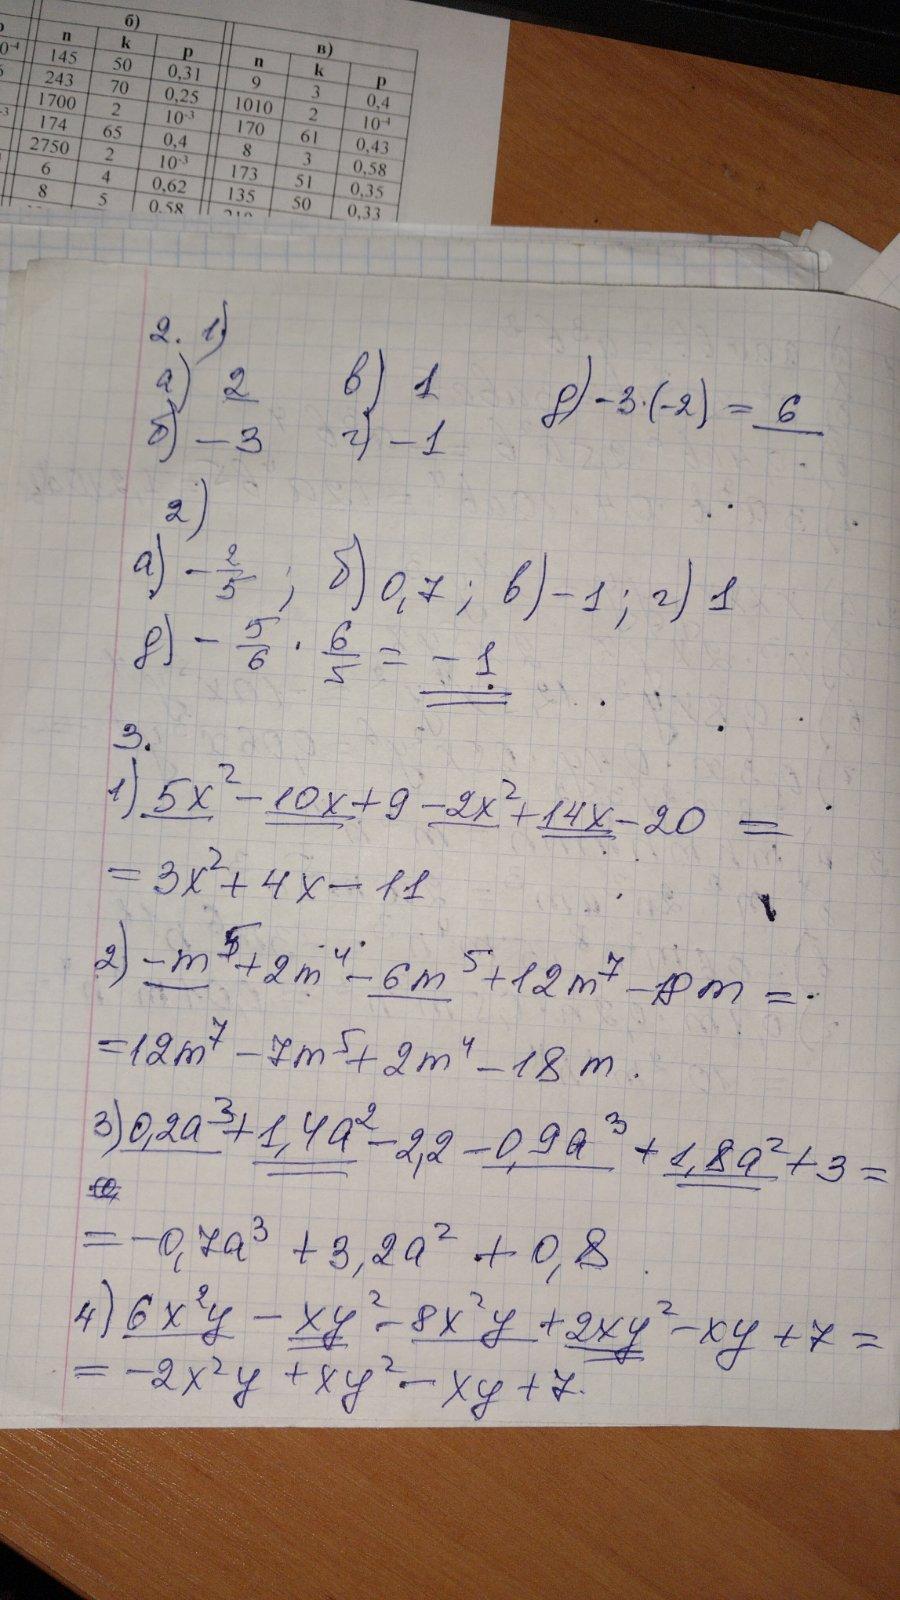 б) в)
n k p n k p
145 50 0,31 9 3 0,4
243 70 0,25 1010 2 10⁻⁴
1700 2 10⁻³ 170 61 0,43
174 65 0,4 8 3 0,58
2750 2 10⁻³ 173 51 0,35
6 4 0,62 135 50 0,33
8 5 0,58
2. 1)
а) 2 в) 1 д) -3·(-2) = 6
б) -3 г) -1
2)
а) -2/5; б) 0,7; в) -1; г) 1
д) -5/6 · 6/5 = -1
3.
1) 5x² - 10x + 9 - 2x² + 14x - 20 =
= 3x² + 4x - 11
2) -m⁵ + 2m⁴ - 6m⁵ + 12m⁷ - 18m =
= 12m⁷ - 7m⁵ + 2m⁴ - 18m.
3) 0,2a³ + 1,4a² - 2,2 - 0,9a³ + 1,8a² + 3 =
= -0,7a³ + 3,2a² + 0,8
4) 6x²y - xy² - 8x²y + 2xy² - xy + 7 =
= -2x²y + xy² - xy + 7.